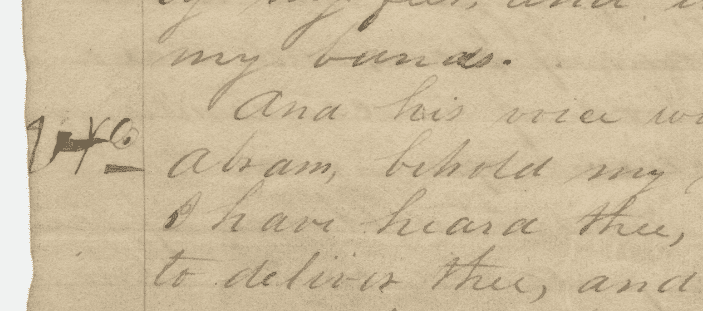 my bands.
And his voice
Abram, behold my
I have heard thee,
to deliver thee, and